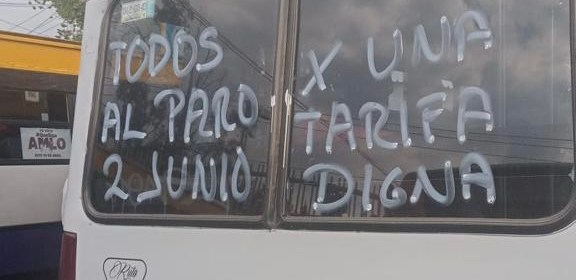 TODOS
AL PARO
2 JUNIO
X UNA
TARIFA
DIGNA
AMLO
Ruta